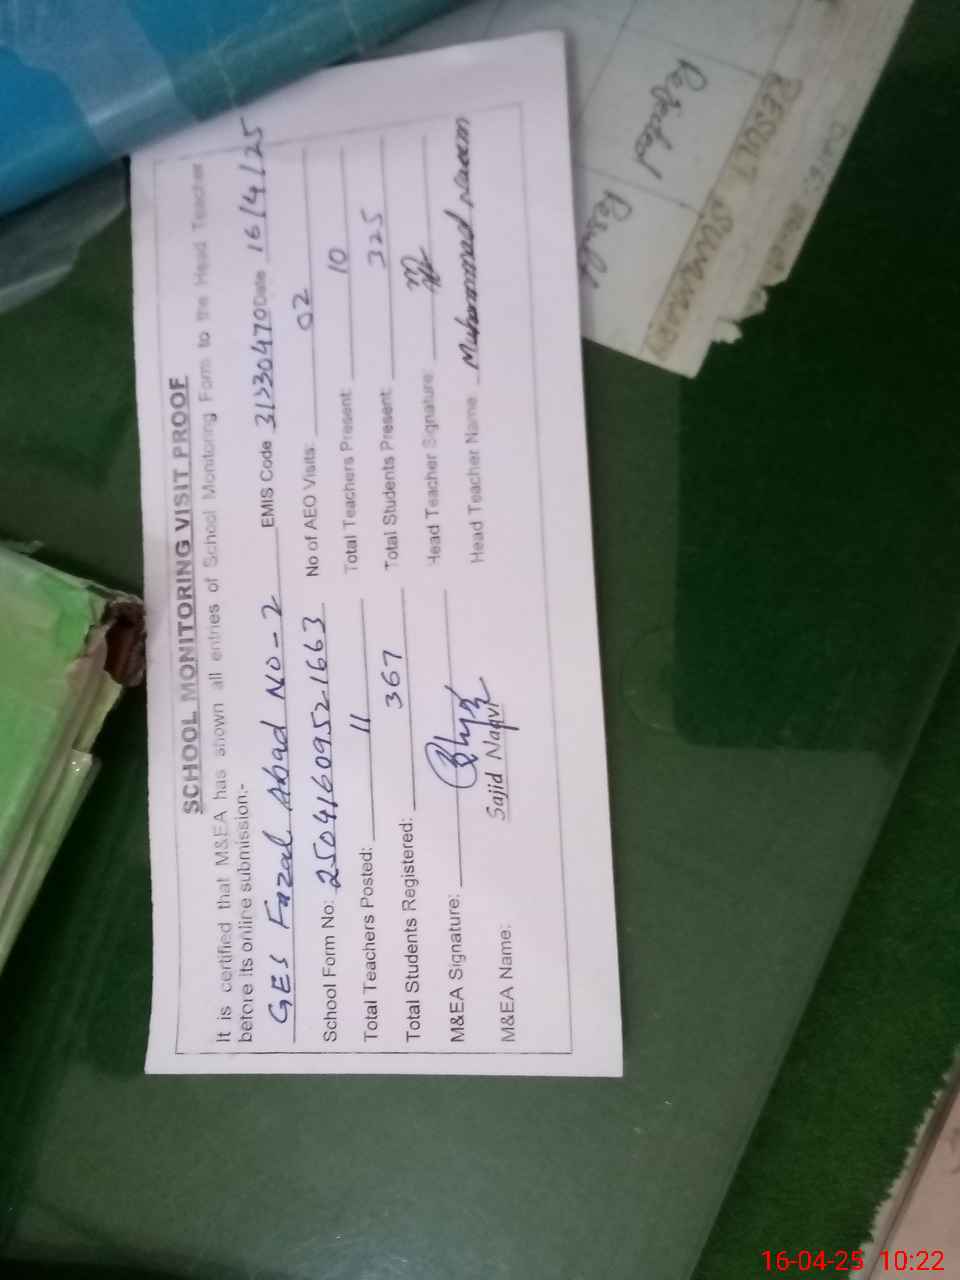 SCHOOL MONITORING VISIT PROOF
It is certified that M&EA has shown all entries of School Monitoring Form to the Head Teacher
before its online submission:-
GES Fazal Abad NO-2 EMIS Code 31330470 Date 16/4/25
School Form No: 25041609521663 No of AEO Visits: 02
Total Teachers Posted: 11 Total Teachers Present: 10
Total Students Registered: 367 Total Students Present: 325
M&EA Signature: Head Teacher Signature:
M&EA Name: Sajid Naqvi Head Teacher Name: Muhammad Naeem
RESULT SUMMARY
16-04-25 10:22